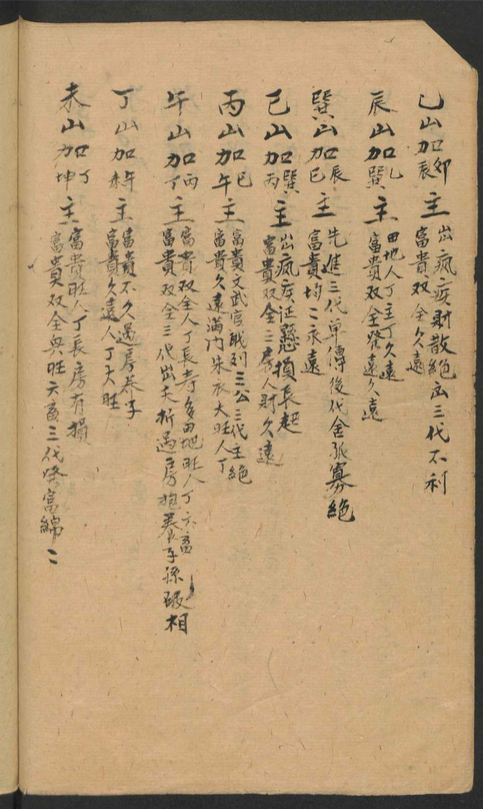 乙山加卯辰主出疯疾財散絕出三代不利
富貴双全久遠
辰山加乙巽主田地人丁主丁久遠
富貴双全榮遠久遠
巽山加辰巳主先進三代单傳後代舍孤寡絕
富貴均二永遠
巳山加巽丙主出疯疾证悬損長起
富貴双全二房人財久遠
丙山加巳午主富貴文武官職列三公三代主絕
富貴久遠滿门朱衣大旺人丁
午山加丙丁主富貴双全人丁長寿多田地旺人丁六畜
富貴双全三代出夭折過房抱養子孫破相
丁山加午未主富貴不久過房养子
富貴久遠人丁大旺
未山加丁坤主富貴旺人丁長房有損
富貴双全興旺六畜三代榮富綿二